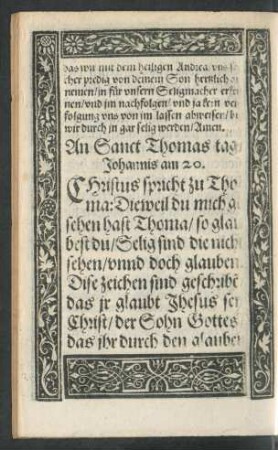 das wir mit dem heiligen Andrea
cher predig von deinem Son hertzlich
nemen/in für vnsern Seligmacher
nen/vnd im nachfolgen/vnd ja kein
folgung vns von im lassen abweisen/
wir durch in gar selig werden/Amen.
An Sanct Thomas tag
Johannis am 20.
CHristus spricht zu Tho
ma: Dieweil du mich
sehen hast Thoma/so glau
best du/Selig sind die nicht
sehen/vnnd doch glauben
Dise zeichen sind geschribe
das jr glaubt Jhesus sey
Christ/der Sohn Gottes
das jhr durch den glauben